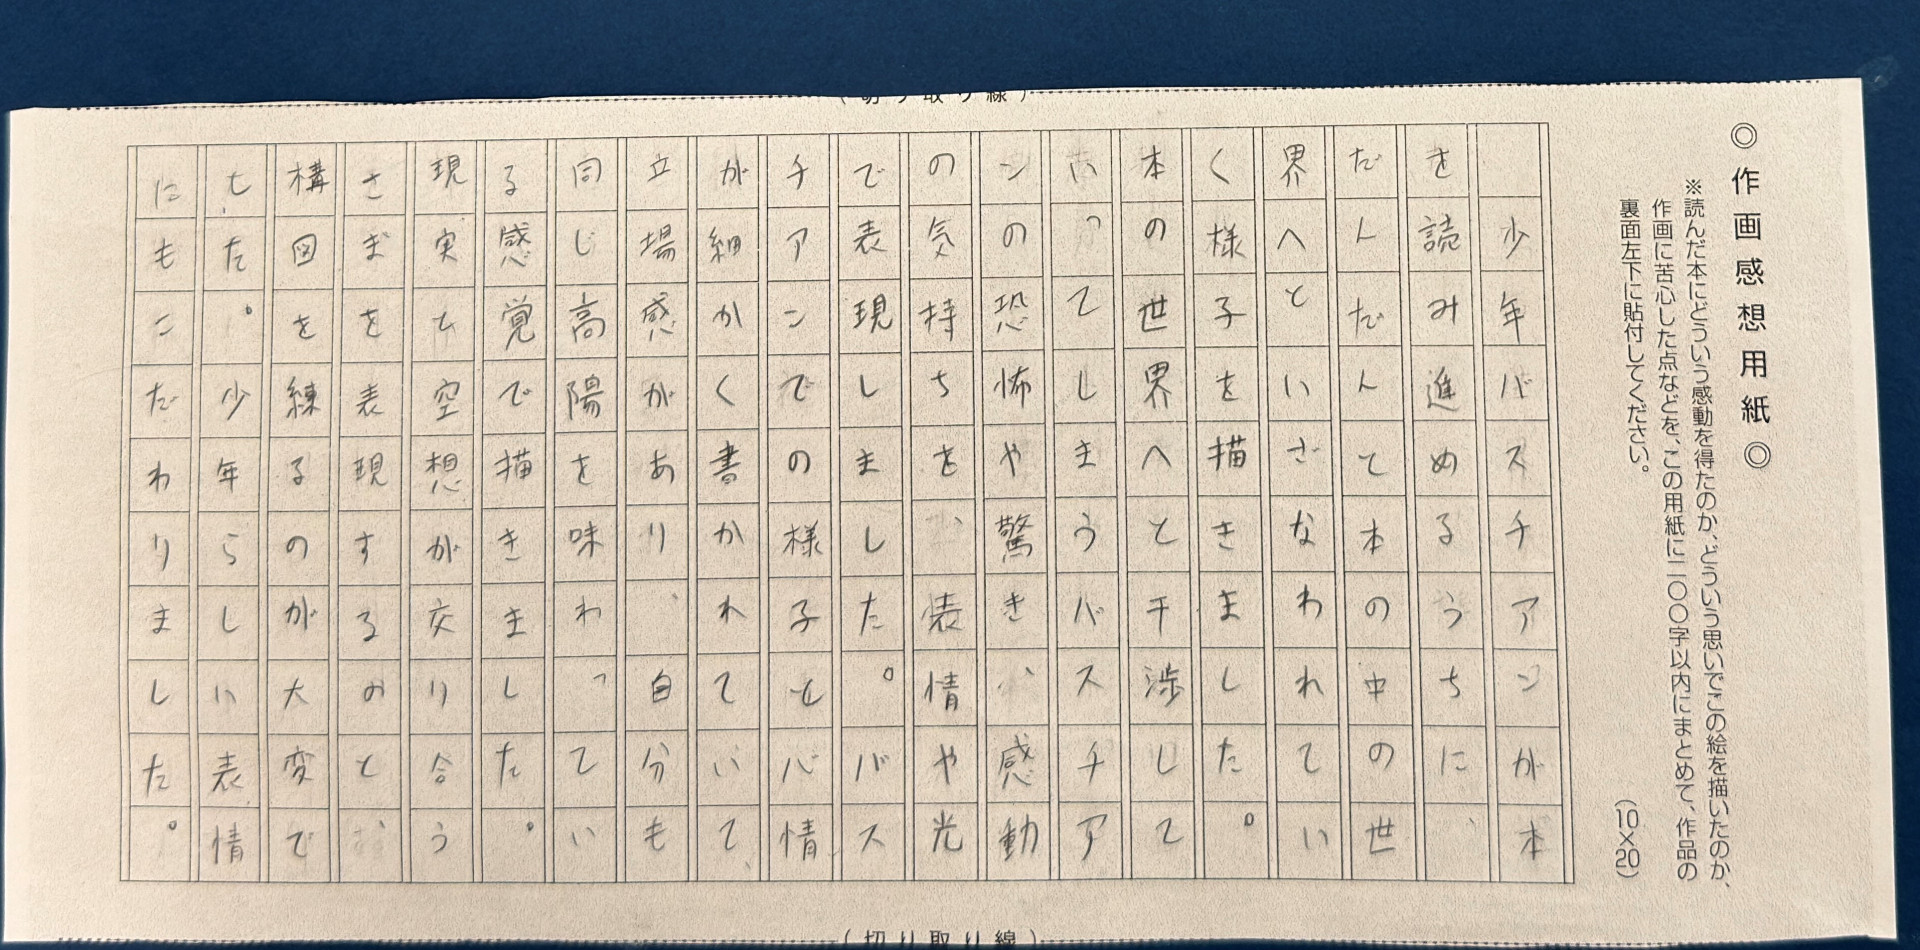 (切り取り線)
◎作画感想用紙◎
※読んだ本にどういう感動を得たのか、どういう思いでこの絵を描いたのか、
作画に苦心した点などを、この用紙に二〇〇字以内にまとめて、作品の
裏面左下に貼付してください。
(10×20)
少年バスチアンが本
を読み進めるうちに、
だんだんと本の中の世
界へといざなわれてい
く様子を描きました。
本の世界へと干渉して
いってしまうバスチア
ンの恐怖や驚き、感動
の気持ちを、表情や光
で表現しました。バス
チアンでの様子と情
が細かく書かれていて、
立場感があり、自分も
同じ高陽を味わってい
る感覚で描きました。
現実と空想が交り合う
さまを表現するのと、
構図を練るのが大変で
した。少年らしい表情
にもこだわりました。
(切り取り線)